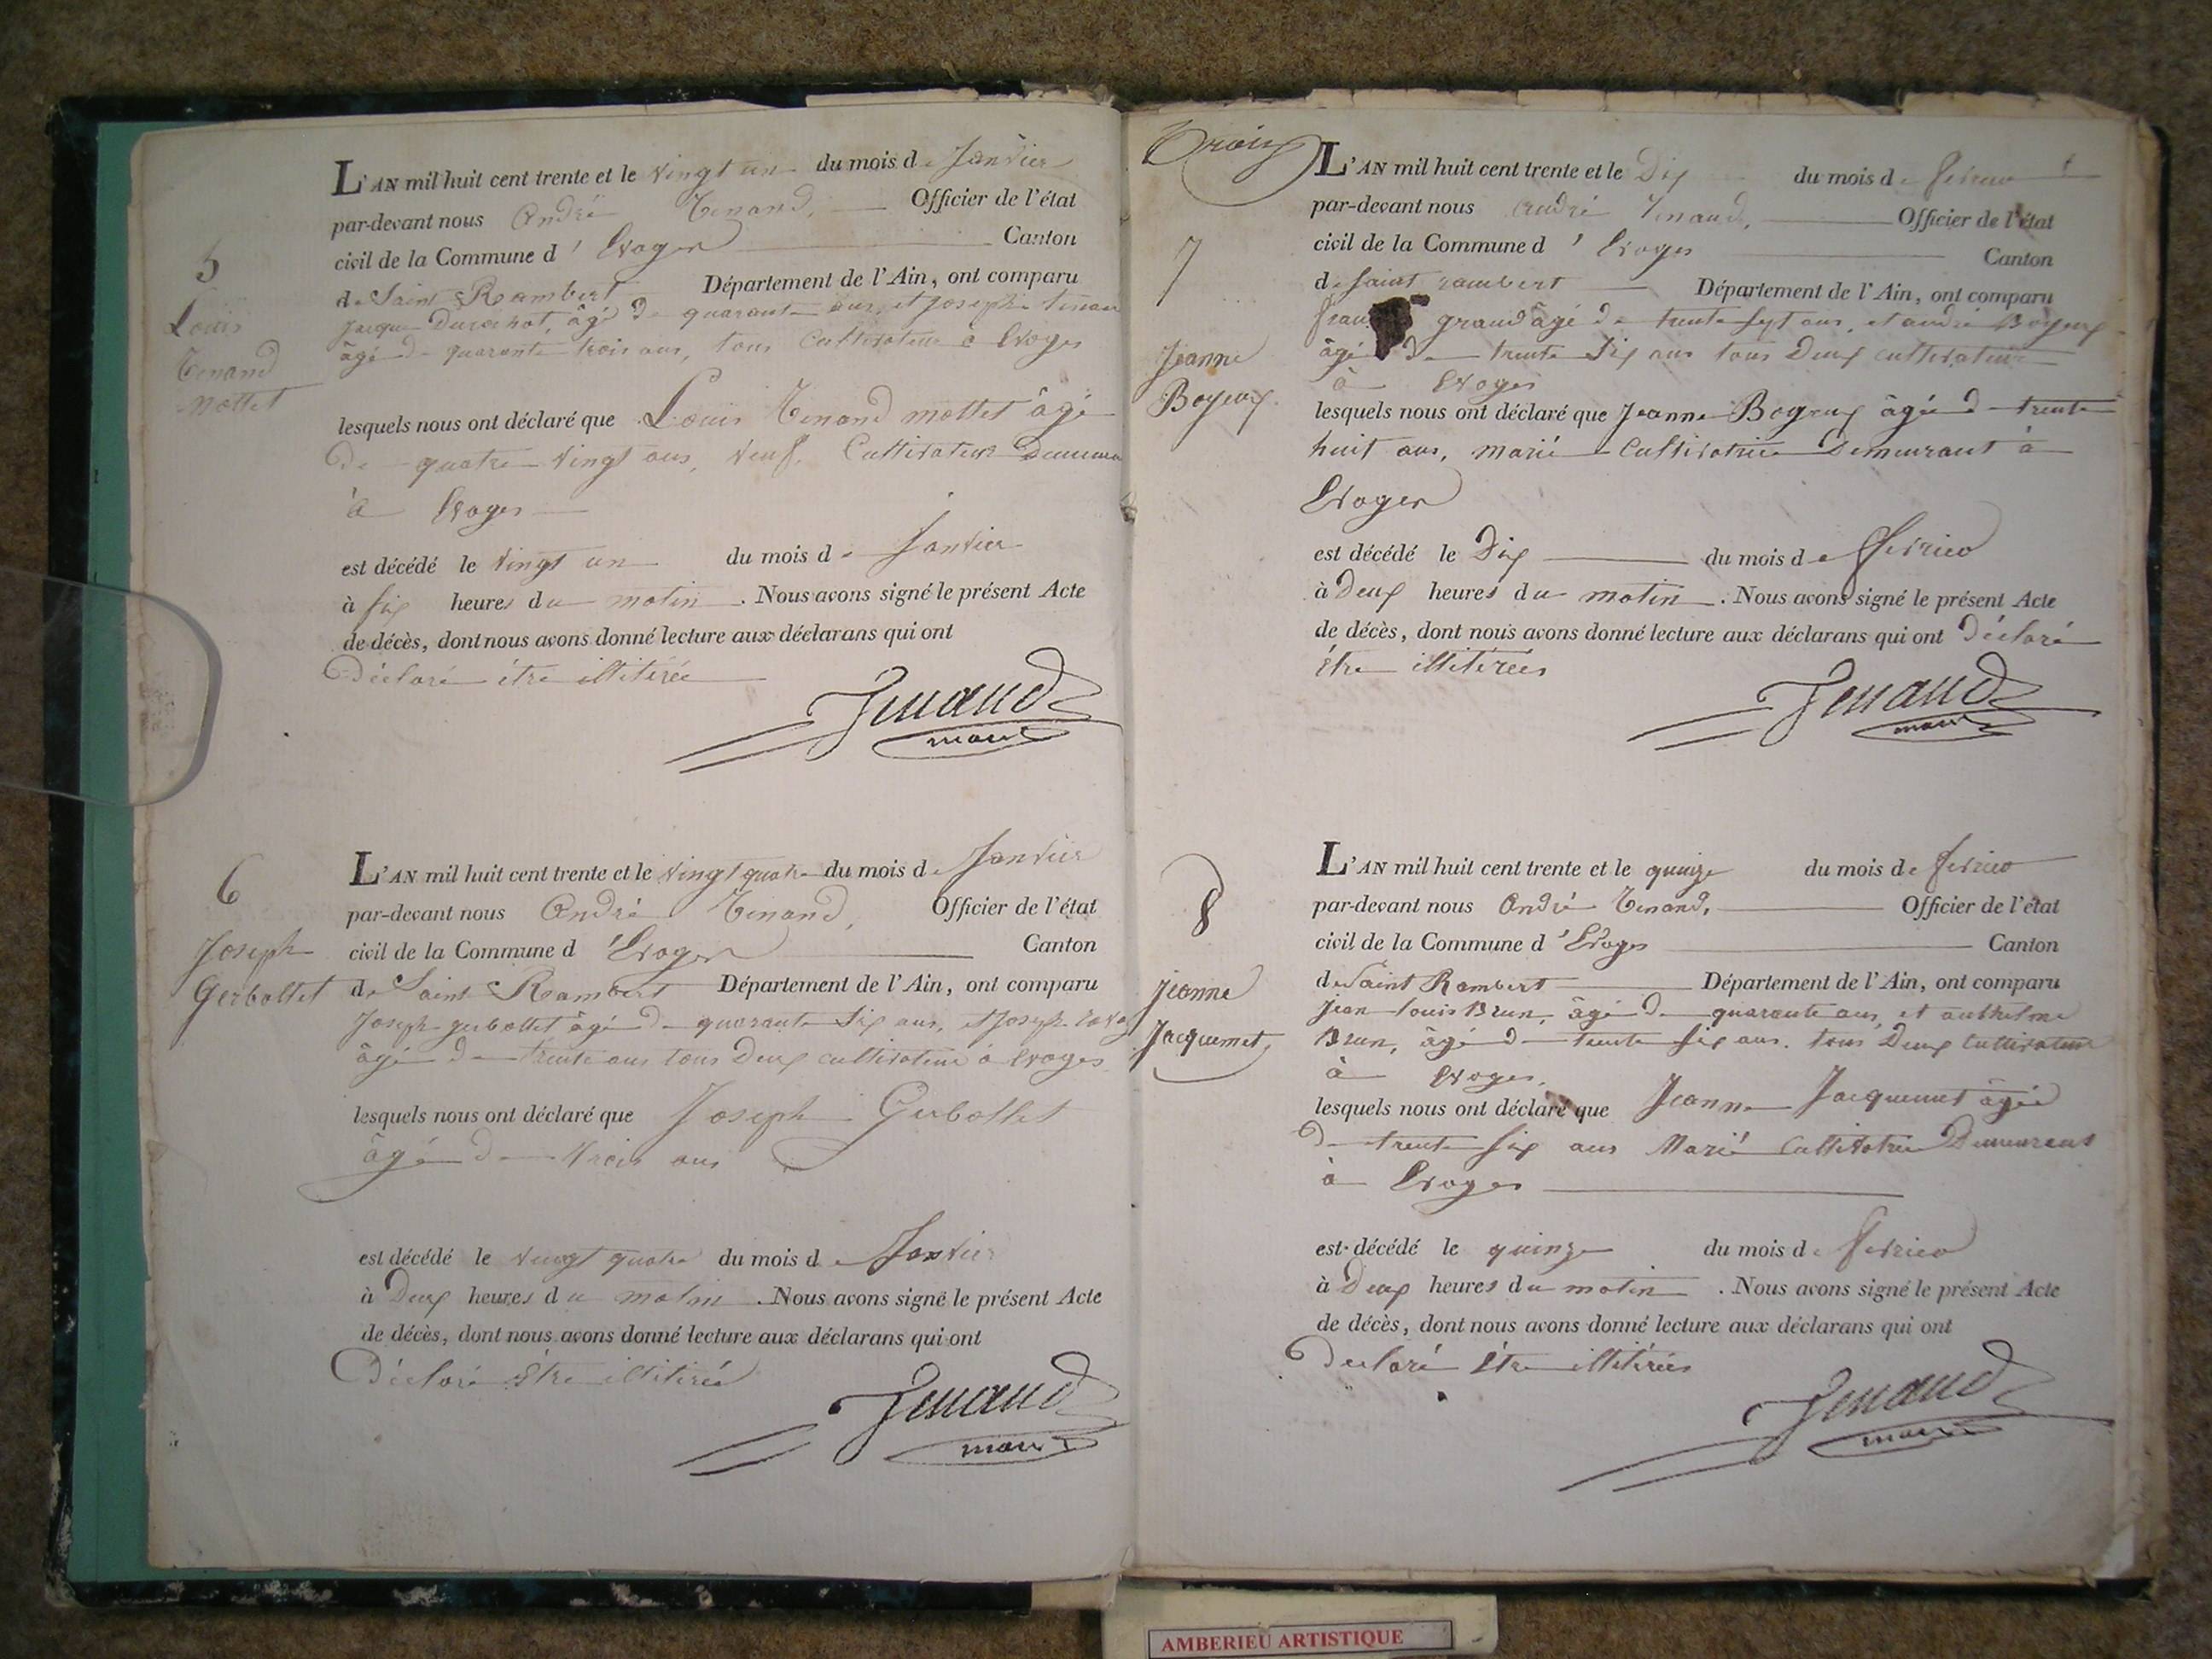 5
Louis
Tenand
Mottet
L'AN mil huit cent trente et le vingt un du mois de Janvier
par-devant nous André Tenand, Officier de l'état
civil de la Commune d'Evoges Canton
de Saint Rambert Département de l'Ain, ont comparu
âgé de quarante trois ans, tous Cultivateur à Evoges
lesquels nous ont déclaré que Louis Tenand mottet âgé
de quatre vingt ans, veuf, Cultivateur
à Evoges
est décédé le vingt un du mois de Janvier
à six heures du matin. Nous avons signé le présent Acte
de décès, dont nous avons donné lecture aux déclarans qui ont
Déclaré être illitérée
Tenand
maire
6
Joseph
Gerbollet
L'AN mil huit cent trente et le vingt quatre du mois de Janvier
par-devant nous André Tenand, Officier de l'état
civil de la Commune d'Evoges Canton
de Saint Rambert Département de l'Ain, ont comparu
Joseph gerbollet âgé de quarante six ans, et Joseph
âgé de trente ans tous deux cultivateur à Evoges
lesquels nous ont déclaré que Joseph Gerbollet
âgé de trois ans
est décédé le vingt quatre du mois de Janvier
à Deux heures du matin. Nous avons signé le présent Acte
de décès, dont nous avons donné lecture aux déclarans qui ont
Déclaré être illitérée
Tenand
maire
Trois
7
Jeanne
Bogeux
L'AN mil huit cent trente et le Dix du mois de fevrier
par-devant nous André Tenand, Officier de l'état
civil de la Commune d'Evoges Canton
de Saint rambert Département de l'Ain, ont comparu
grand âgé de trente sept ans, et andré Bogeux
âgé de trente six ans tous Deux cultivateur
à Evoges
lesquels nous ont déclaré que Jeanne Bogeux âgée de trente
huit ans, marié Cultivatrice Demeurant à
Evoges
est décédé le Dix du mois de fevrier
à Deux heures du matin. Nous avons signé le présent Acte
de décès, dont nous avons donné lecture aux déclarans qui ont Déclaré
être illitérées
Tenand
maire
8
Jeanne
Jacquemet
L'AN mil huit cent trente et le quinze du mois de fevrier
par-devant nous André Tenand, Officier de l'état
civil de la Commune d'Evoges Canton
de Saint Rambert Département de l'Ain, ont comparu
Jean louis Brun, âgé de quarante ans, et anthelme
Brun, âgé de trente six ans. tous Deux Cultivateur
à Evoges.
lesquels nous ont déclaré que Jeanne Jacquemet âgée
de trente six ans Marié Cultivatrice Demeurant
à Evoges
est décédé le quinze du mois de fevrier
à Deux heures du matin. Nous avons signé le présent Acte
de décès, dont nous avons donné lecture aux déclarans qui ont
Declaré être illitérées
Tenand
maire
AMBERIEU ARTISTIQUE